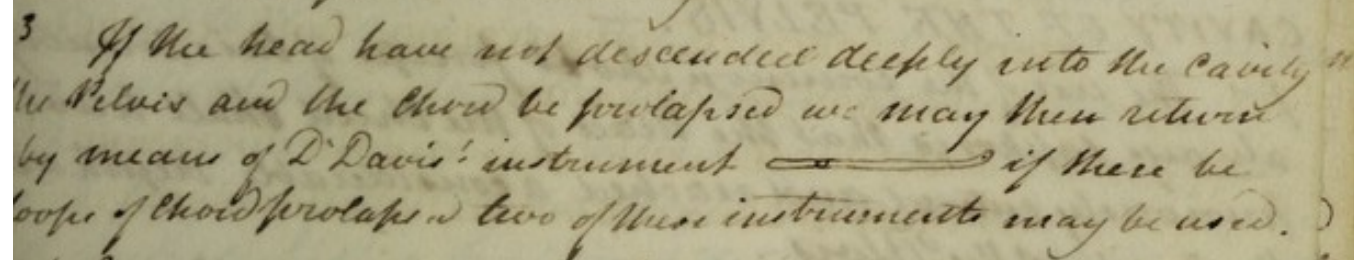 3 If the head have not descended deeply into the cavity
the Pelvis and the Chord be prolapsed we may then return
by means of Dr Davis' instrument if there be
loops of Chord prolapsed two of these instruments may be used.